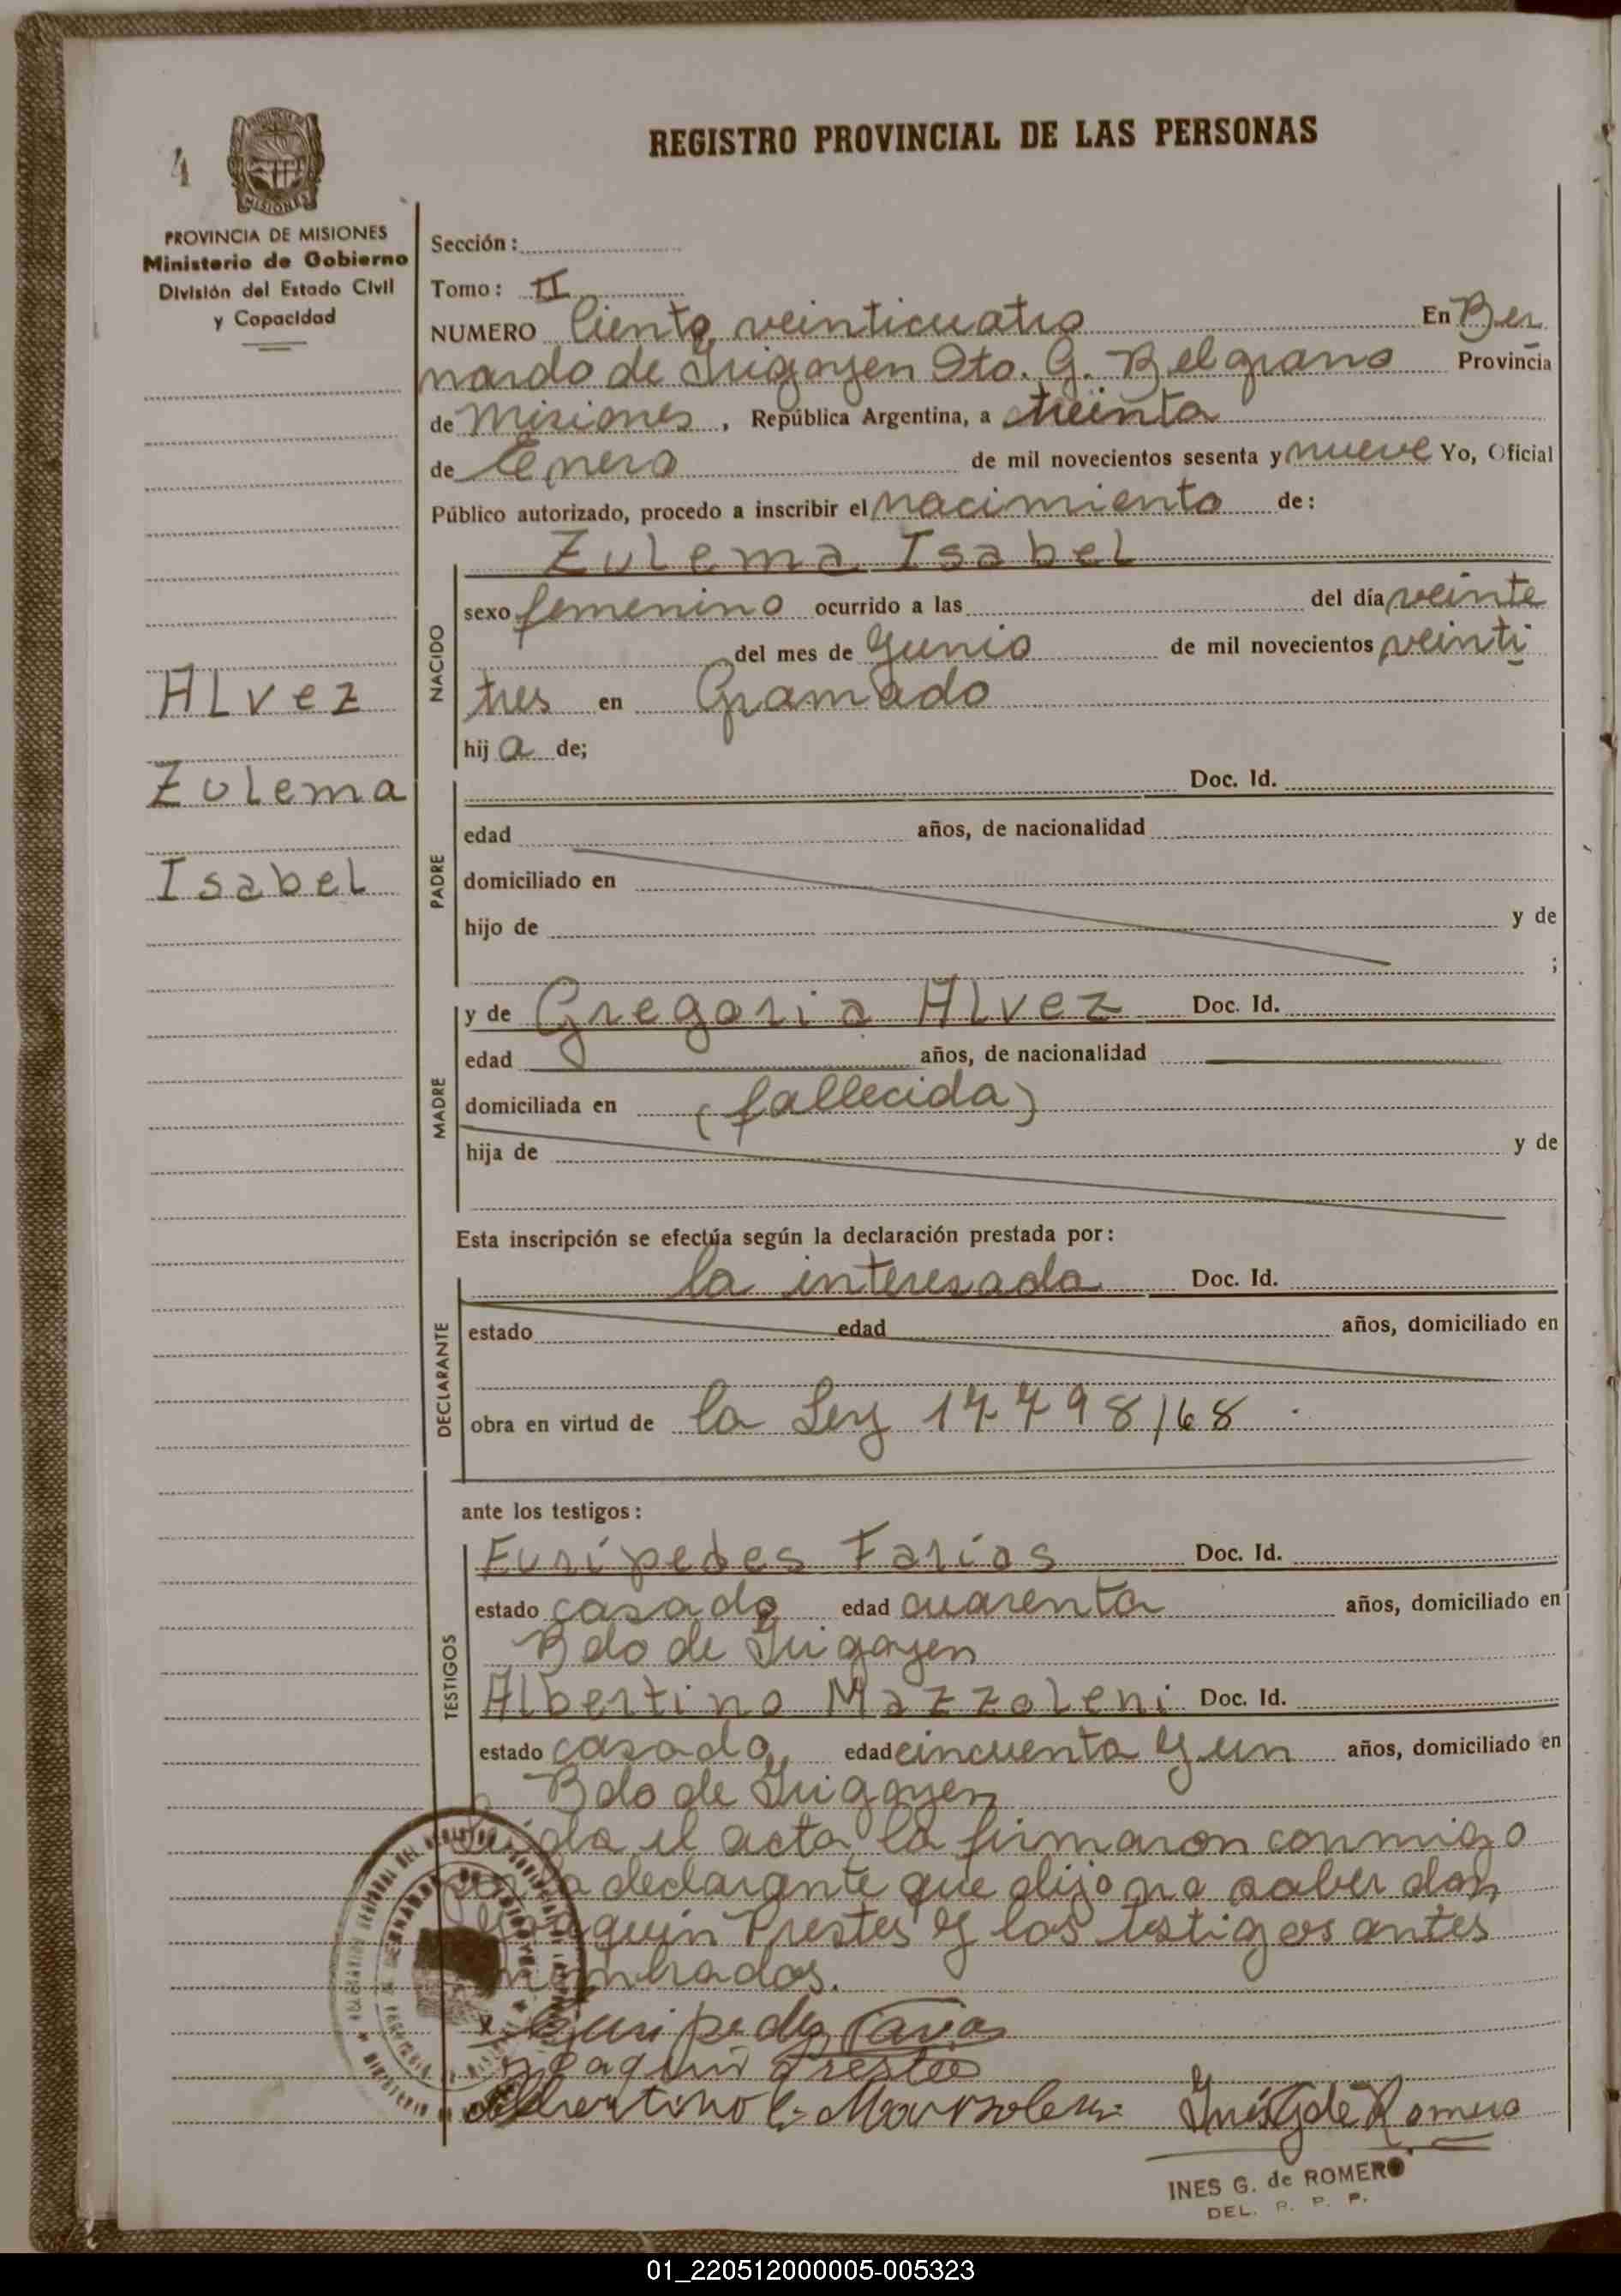 4
MISIONES
PROVINCIA DE MISIONES
Ministerio de Gobierno
División del Estado Civil
y Capacidad
REGISTRO PROVINCIAL DE LAS PERSONAS
Sección:
Tomo: II
NUMERO Ciento veinticuatro En Ber
nardo de Irigoyen Dto. G. Belgrano Provincia
de Misiones, República Argentina, a treinta
de Enero de mil novecientos sesenta y nueve Yo, Oficial
Público autorizado, procedo a inscribir el nacimiento de:
Zulema Isabel
NACIDO
sexo femenino ocurrido a las del día veinte
del mes de Junio de mil novecientos veinti
tres en Gramado
hij a de;
Alvez
Zulema
Isabel
PADRE
Doc. Id.
edad años, de nacionalidad
domiciliado en
hijo de y de
;
MADRE
y de Gregoria Alvez Doc. Id.
edad años, de nacionalidad
domiciliada en (fallecida)
hija de y de
Esta inscripción se efectúa según la declaración prestada por:
DECLARANTE
la interesada Doc. Id.
estado edad años, domiciliado en
obra en virtud de la Ley 17798/68.
ante los testigos:
TESTIGOS
Eurípedes Farías Doc. Id.
estado casado edad cuarenta años, domiciliado en
Bdo de Irigoyen
Albertino Mazzoleni Doc. Id.
estado casado, edad cincuenta y un años, domiciliado en
Bdo de Irigoyen
Leída el acta la firmaron conmigo
por la declarante que dijo no saber don
Joaquín Prestes y los testigos antes
nombrados.
Euripedes Farias
Joaquin Prestes
Inés G de Romero
INES G. de ROMERO
DEL. R. P. P.
01_220512000005-005323